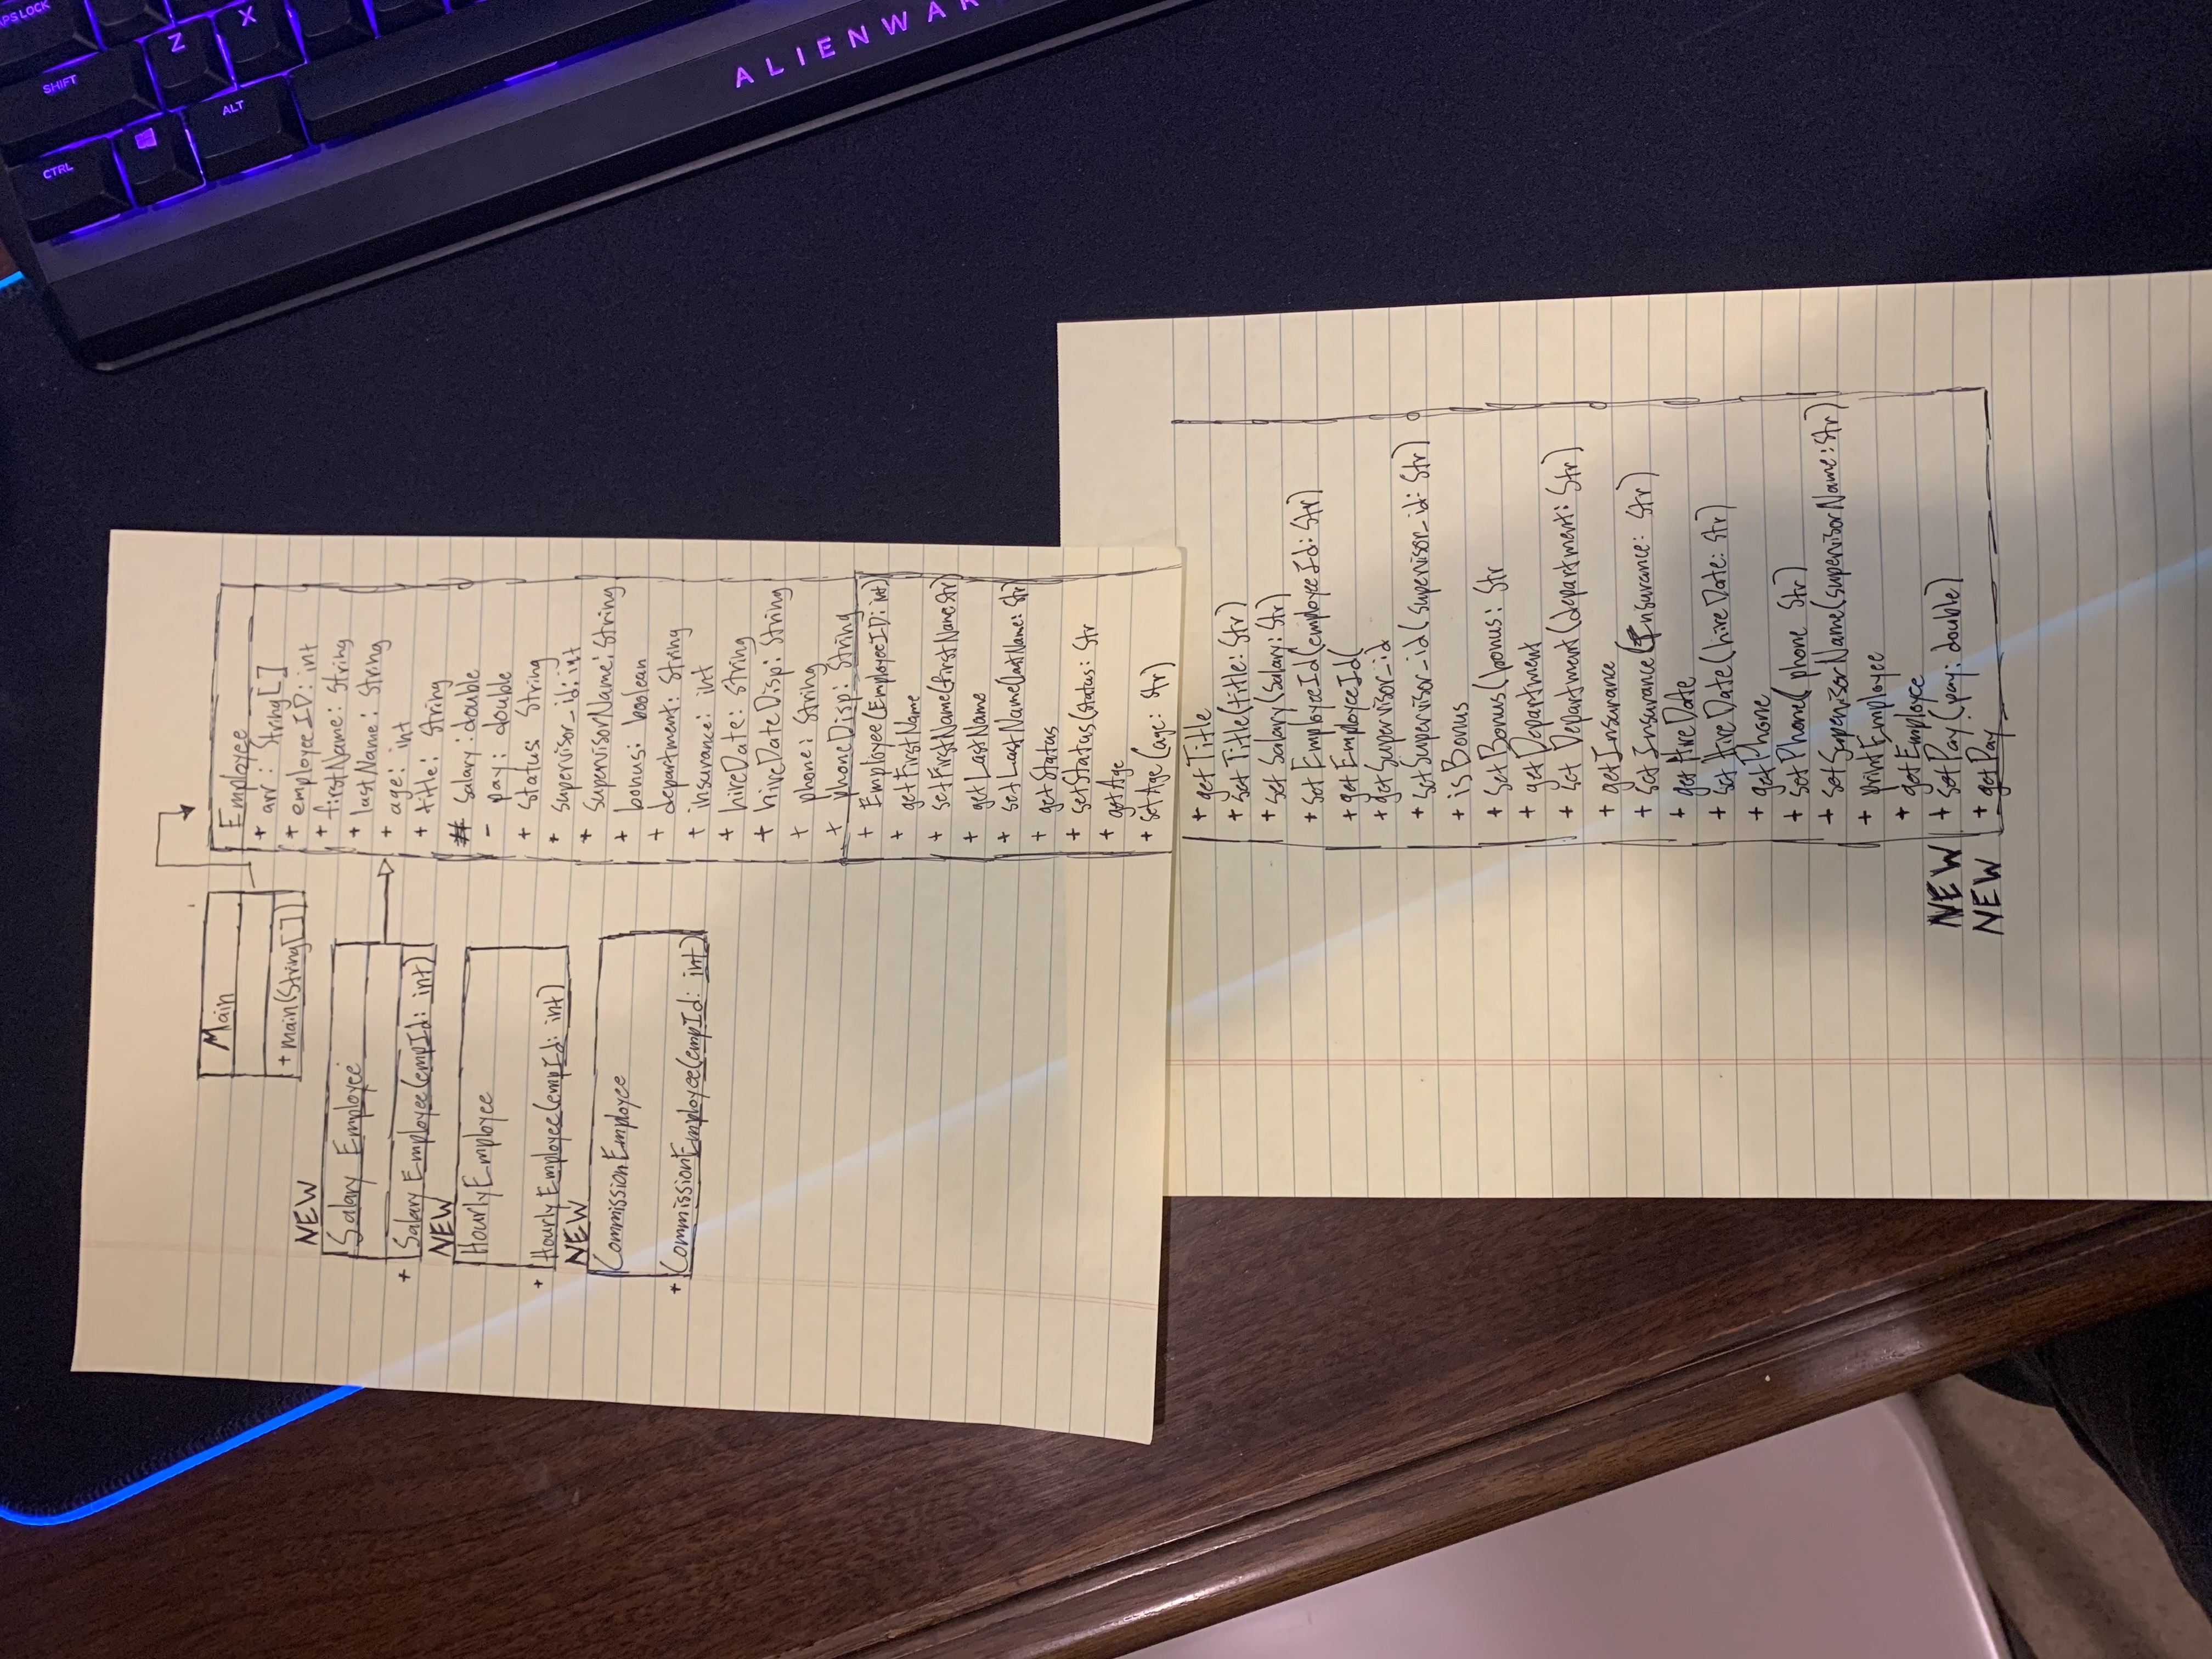 Main
+ main(String[])
NEW
Salary Employee
+ Salary Employee(empId: int)
NEW
HourlyEmployee
+ Hourly Employee(empId: int)
NEW
CommissionEmployee
+ CommissionEmployee(empId: int)
Employee
+ arr: String[]
+ employeeID: int
+ firstName: String
+ lastName: String
+ age: int
+ title: String
# salary: double
- pay: double
+ status: String
+ supervisor_id: int
+ supervisorName: String
+ bonus: boolean
+ department: String
+ insurance: int
+ hireDate: String
+ hireDateDisp: String
+ phone: String
+ phoneDisp: String
+ Employee(EmployeeID: int)
+ getFirstName
+ setFirstName(firstName Str)
+ getLastName
+ setLastName(lastName: Str)
+ getStatus
+ setStatus(status: Str
+ getAge
+ setAge(age: Str)
+ getTitle
+ setTitle(title: Str)
+ setSalary(salary: Str)
+ setEmployeeId(employeeId: Str)
+ getEmployeeId(
+ getSupervisor_id
+ setSupervisor_id(supervisor_id: Str)
+ isBonus
+ setBonus(bonus: Str
+ getDepartment
+ set Department(department: Str)
+ getInsurance
+ setInsurance(Insurance: Str)
+ getHireDate
+ setHireDate(hireDate: Str)
+ getPhone
+ setPhone(phone Str)
+ setSupervisorName(supervisorName: Str)
+ printEmployee
+ getEmployee
NEW + setPay(pay: double)
NEW + getPay
CTRL
SHIFT
APS LOCK
Z
ALT
X
ALIENWAR